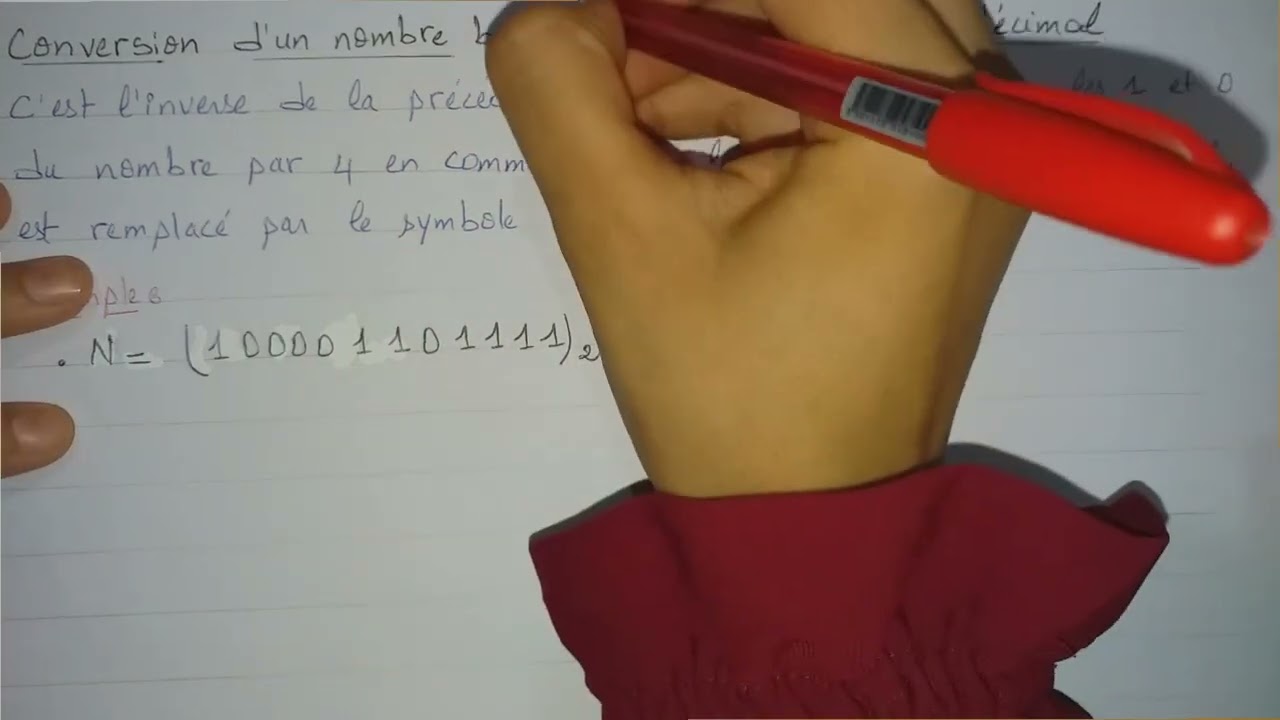 Conversion d'un nombre
C'est l'inverse de la 1 et 0
du nombre par 4 en
est remplacé par le symbole
. N = (100001101111)₂